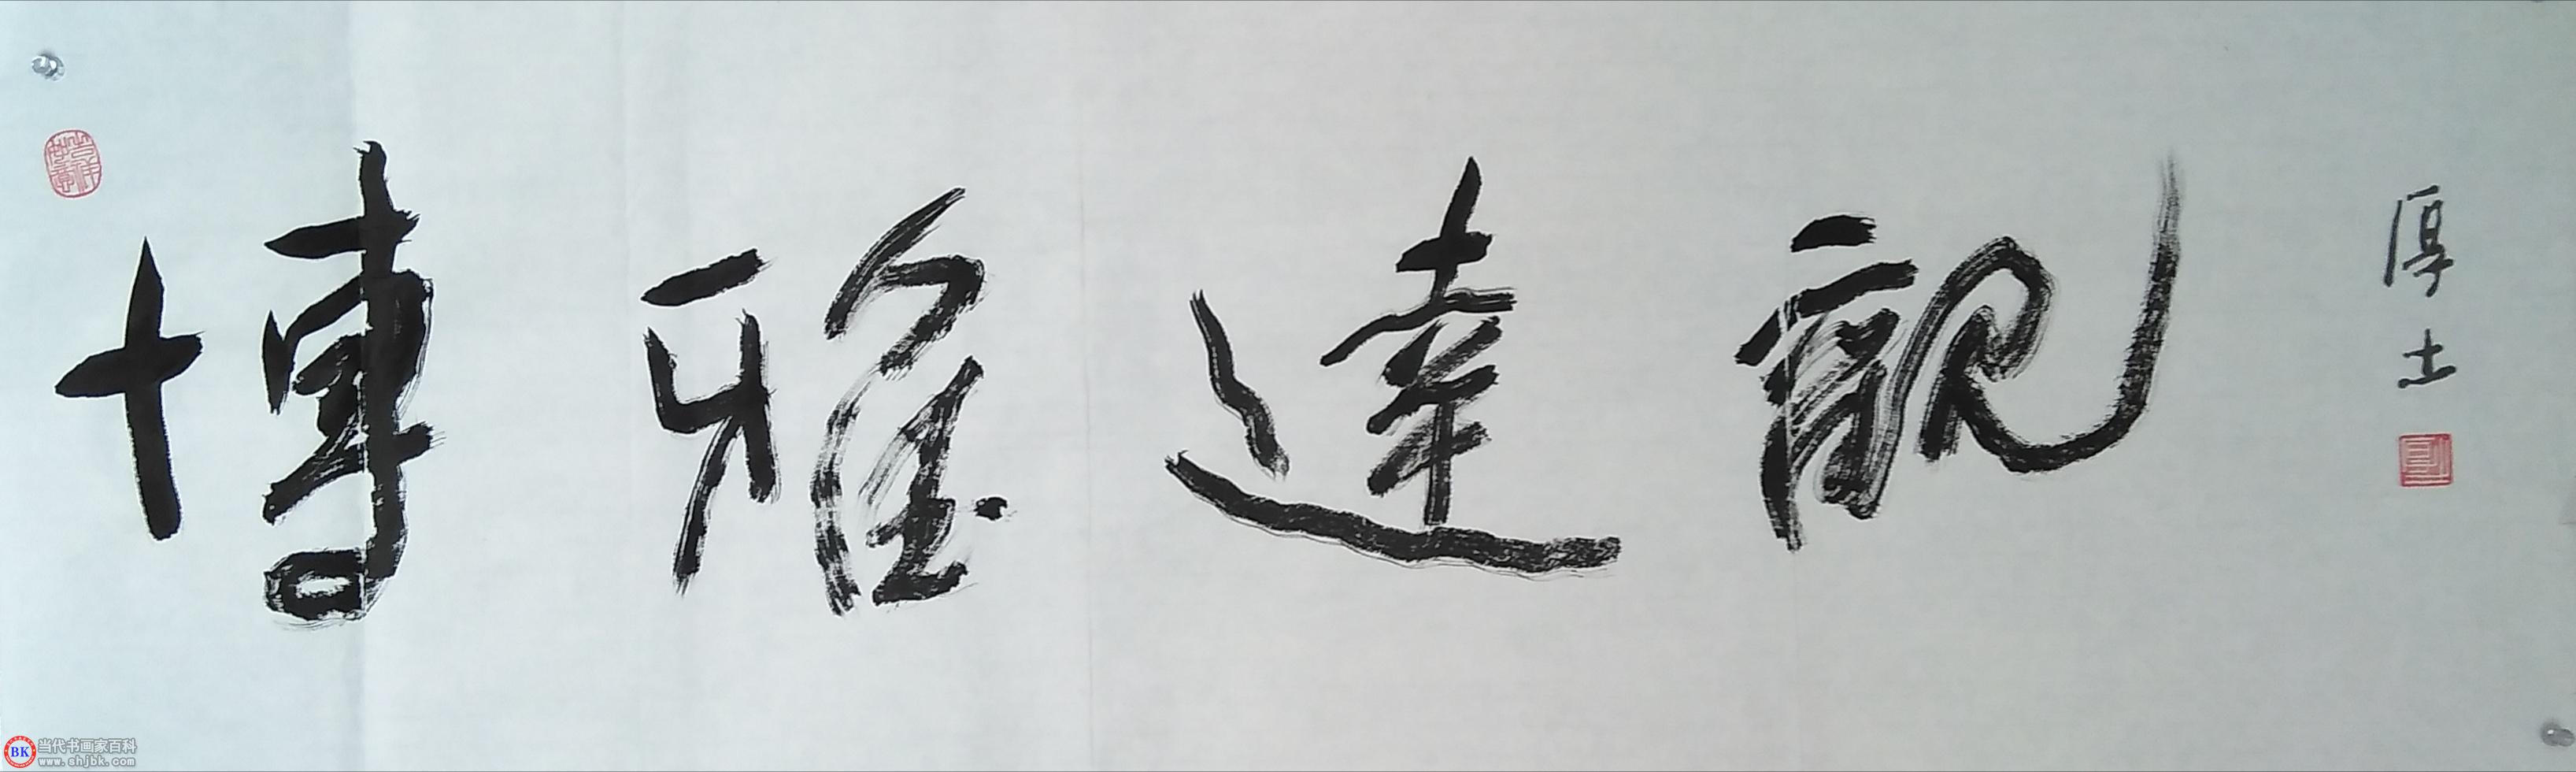 博雅達觀
厚土
BK 当代书画家百科
www.shjbk.com